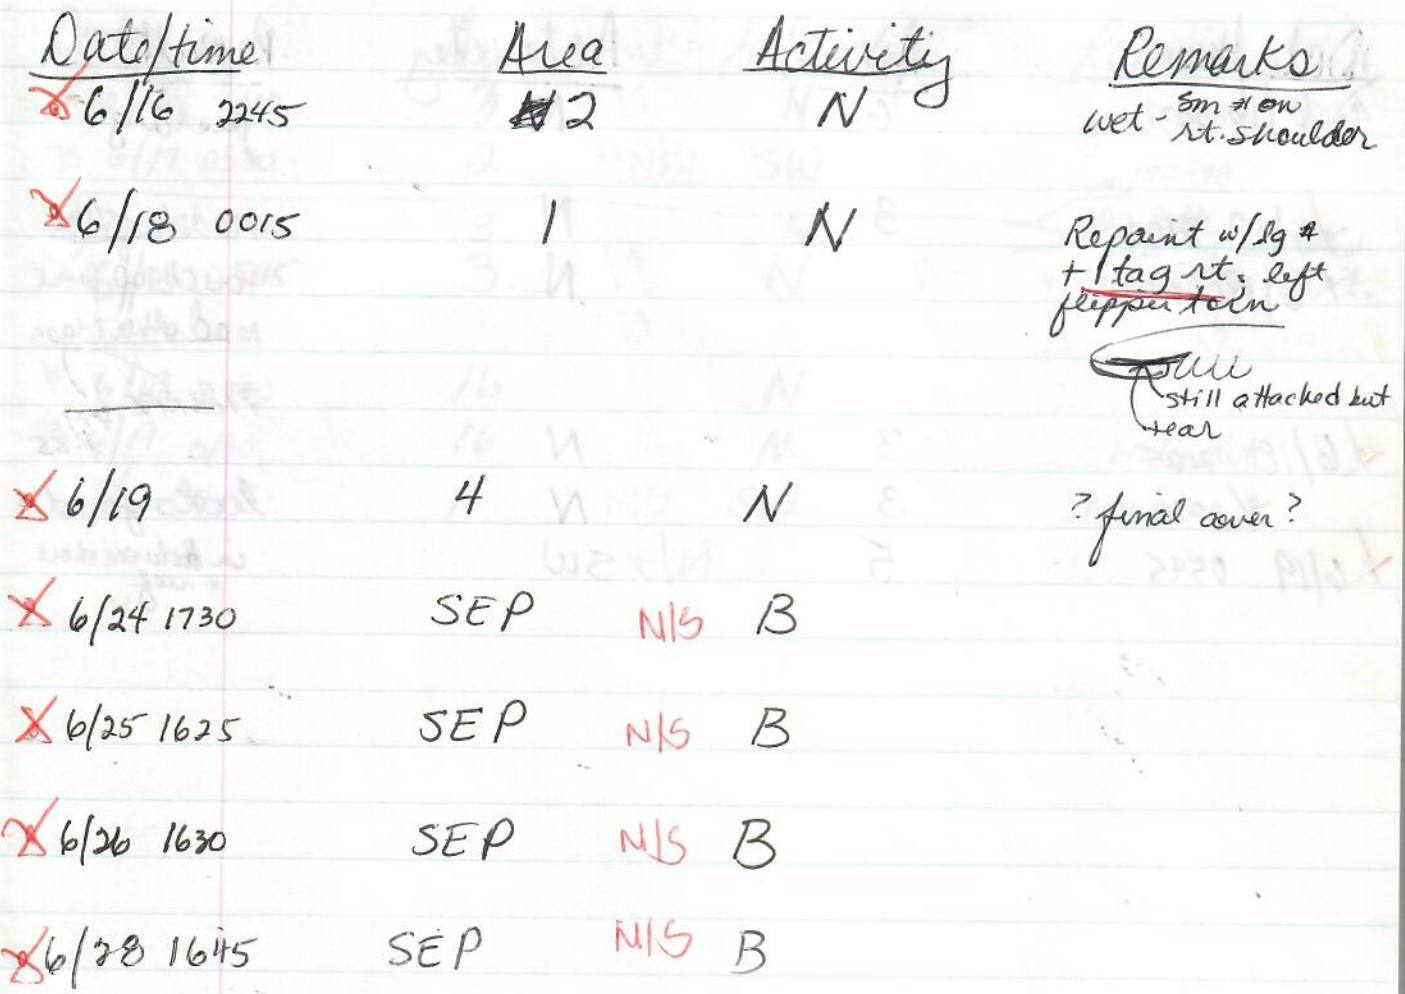 Date/time Area Activity Remarks
6/16 2245 2 N wet - sm # on
rt. shoulder
6/18 0015 1 N Repaint w/lg #
+ 1 tag rt. left
flipper torn
still attached but
tear
6/19 4 N ? final cover ?
6/24 1730 SEP N/S B
6/25 1625 SEP N/S B
6/26 1630 SEP N/S B
6/28 1645 SEP N/S B